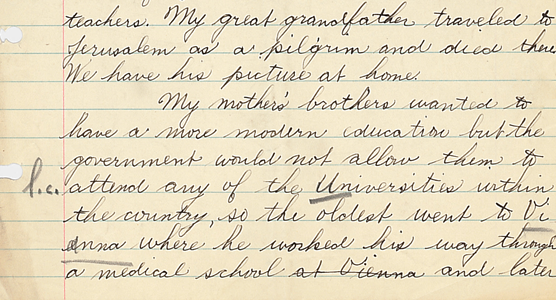 teachers. My great grandfather traveled to
Jerusalem as a pilgrim and died there
We have his picture at home.
My mothers' brothers wanted to
have a more modern education but the
government would not allow them to
l.c. attend any of the Universities within
the country, so the oldest went to Vi
enna where he worked his way through
a medical school at Vienna and later